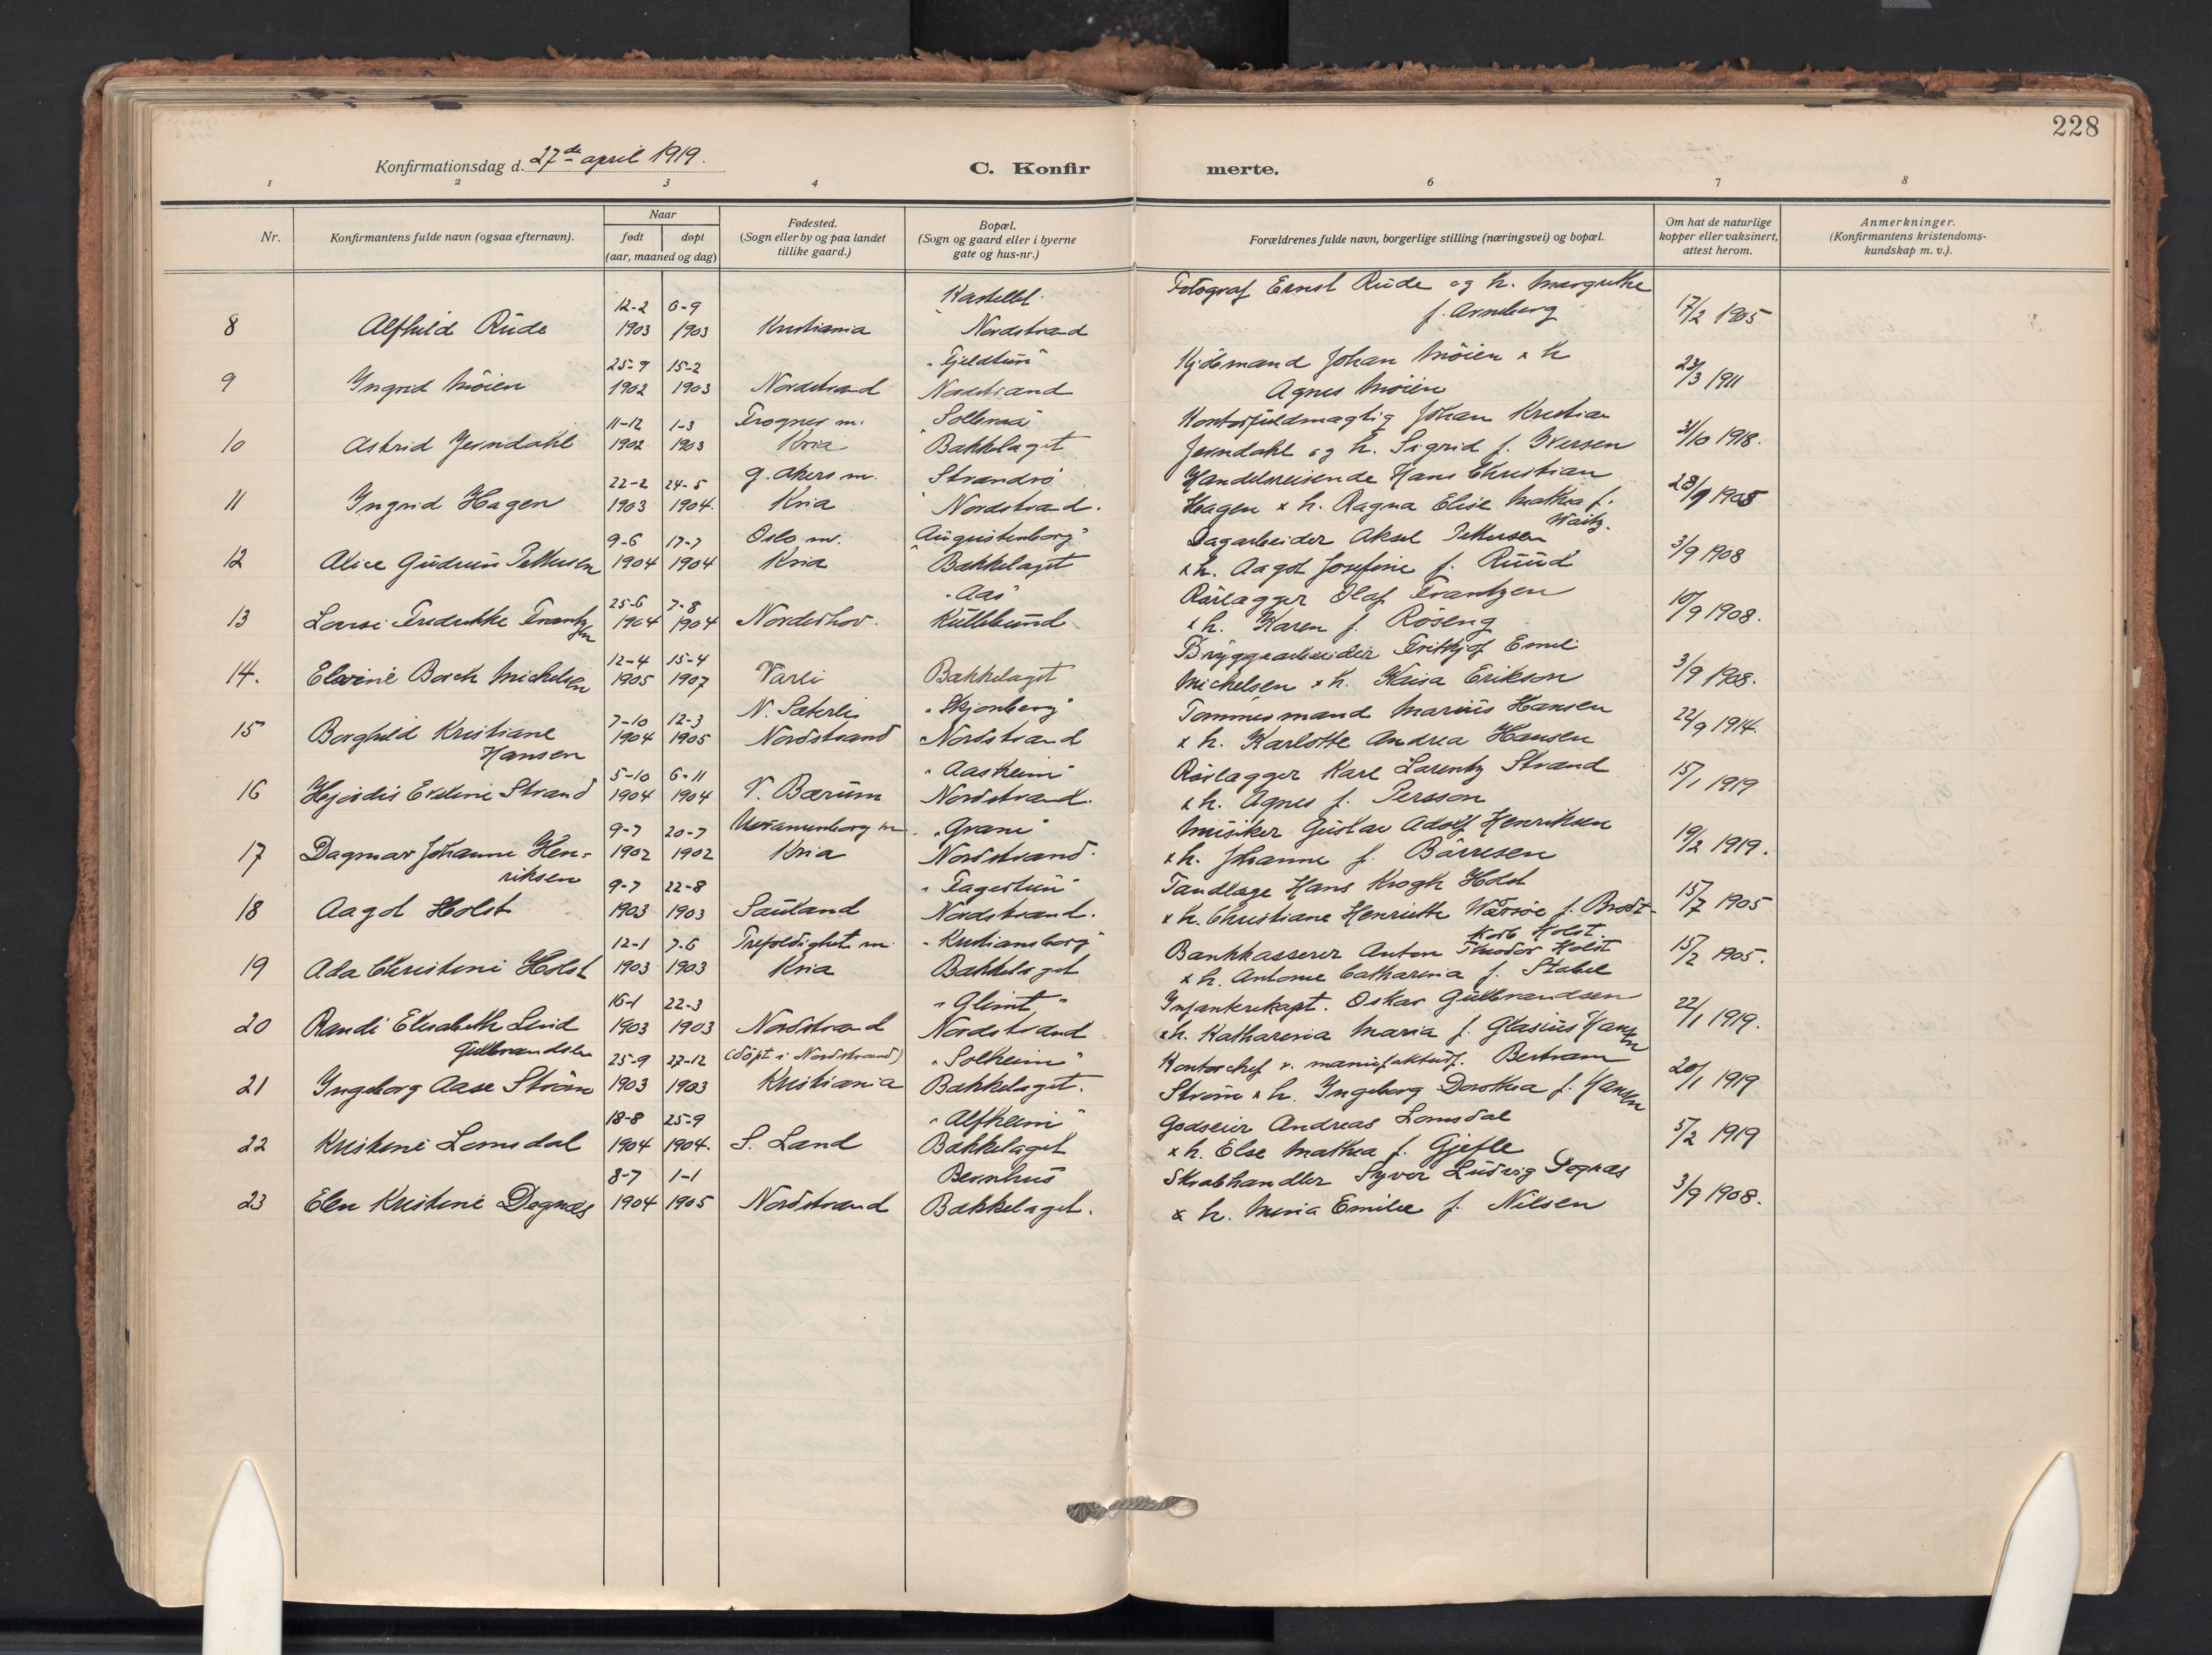 228
Konfirmationsdag d. 27de april 1919.
C. Konfirmerte.
1 2 3 4 6 7 8
Nr.
Konfirmantens fulde navn (ogsaa efternavn).
Naar
født døpt
(aar, maaned og dag)
Fødested.
(Sogn eller by og paa landet
tillike gaard.)
Bopæl.
(Sogn og gaard eller i byerne
gate og hus-nr.)
Forældrenes fulde navn, borgerlige stilling (næringsvei) og bopæl.
Om hat de naturlige
kopper eller vaksinert,
attest herom.
Anmerkninger.
(Konfirmantens kristendoms-
kundskap m. v.).
12-2 6-9 Kastellet Fotograf Ernst Rude og h. Margrethe
8 Alfhild Rude 1903 1903 Kristiania Nordstrand f. Arneberg 17/2 1905
25-9 15-2 "Fjeldtun" Kjöbmand Johan Möien x h
9 Yngrid Möien 1902 1903 Nordstrand Nordstrand Agnes Möien 23/3 1911
11-12 1-3 Frogner m. Solbraa Kontorfuldmægtig Johan Kristian
10 Astrid Jerndahl 1902 1903 Kria Bakkelaget Jerndahl og h. Sigrid f. Iversen 31/10 1918.
22-2 24-5 g. Akers m. Strandro Handelsreisende Hans Christian
11 Yngrid Hagen 1903 1904. Kria Nordstrand. Hagen x h. Ragna Elise Mathea f. Waitz. 28/9 1905
9-6 17-7 Oslo m. "Augustenborg" Dagarbeider Aksel Pettersen
12 Alice Gudrun Pettersen 1904 1904 Kria Bakkelaget x h. Aagot Josefine f. Ruud 3/9 1908
25-6 7-8 "Aas" Rörlægger Olaf Frantzen
13 Lovise Fredrikke Frantzen 1904 1904 Norderhov. Kullebund x h. Karen f. Röseng 10/9 1908.
12-4 15-4 Bryggearbeider Frithjof Emil
14. Elvine Borch Michelsen 1905 1907 Varli Bakkelaget Michelsen x h. Kaisa Erikson 3/9 1908.
7-10 12-3 N. Sæterli "Skjonberg" Tommesmand Marius Hansen
15 Borghild Kristiane 1904 1905 Nordstrand Nordstrand x h. Karlotte Andrea Hansen 22/9 1914.
Hansen
5-10 6-11 "Aasheim" Rörlægger Karl Larentz Strand
16 Hjördis Eveline Strand 1904 1904 V. Bærum Nordstrand. x h. Agnes f. Persson 15/1 1919
9-7 20-7 Uranienborg m. "Grane" Musiker Gustav Adolf Henriksen
17 Dagmar Johanne Hen- 1902 1902 Kria Nordstrand. x h. Johanne f. Börresen 19/2 1919.
riksen
9-7 22-8 "Fagertun" Tandlæge Hans Krogh Holst
18 Aagot Holst 1903 1903 Sauland Nordstrand. x h. Christiane Henriette Warsöe f. Brodt- 15/7 1905
korb Holst.
12-1 7-6 Trefoldighet m. "Kristiansborg" Bankkasserer Anton Theodor Holst
19 Ada Christine Holst 1903 1903 Kria Bakkelaget x h. Antonie Catharina f. Stabel 15/2 1905.
16-1 22-3 "Glimt" Infanterikapt. Oskar Gulbrandsen
20 Randi Elisabeth Lind 1903 1903 Nordstrand Nordstrand x h. Katharina Maria f. Glasius Hansen 22/1 1919.
Gulbrandsen
25-9 27-12 (döpt i Nordstrand) "Solheim" Kontorchef v. manufakturf. Bertram
21 Yngeborg Aase Ström 1903 1903 Kristiania Bakkelaget. Ström x h. Yngeborg Dorothea f. Hansen 20/1 1919
18-8 25-9 "Alfheim" Godseier Andreas Lomsdal
22 Kristine Lomsdal 1904 1904. S. Land Bakkelaget x h. Else Mathea f. Gjefle 5/2 1919
8-7 1-1 Bernhus Skrabhandler Syver Ludvig Degnæs
23 Elen Kristine Degnæs 1904 1905 Nordstrand Bakkelaget. x h. Maria Emilie f. Nilsen 3/9 1908.